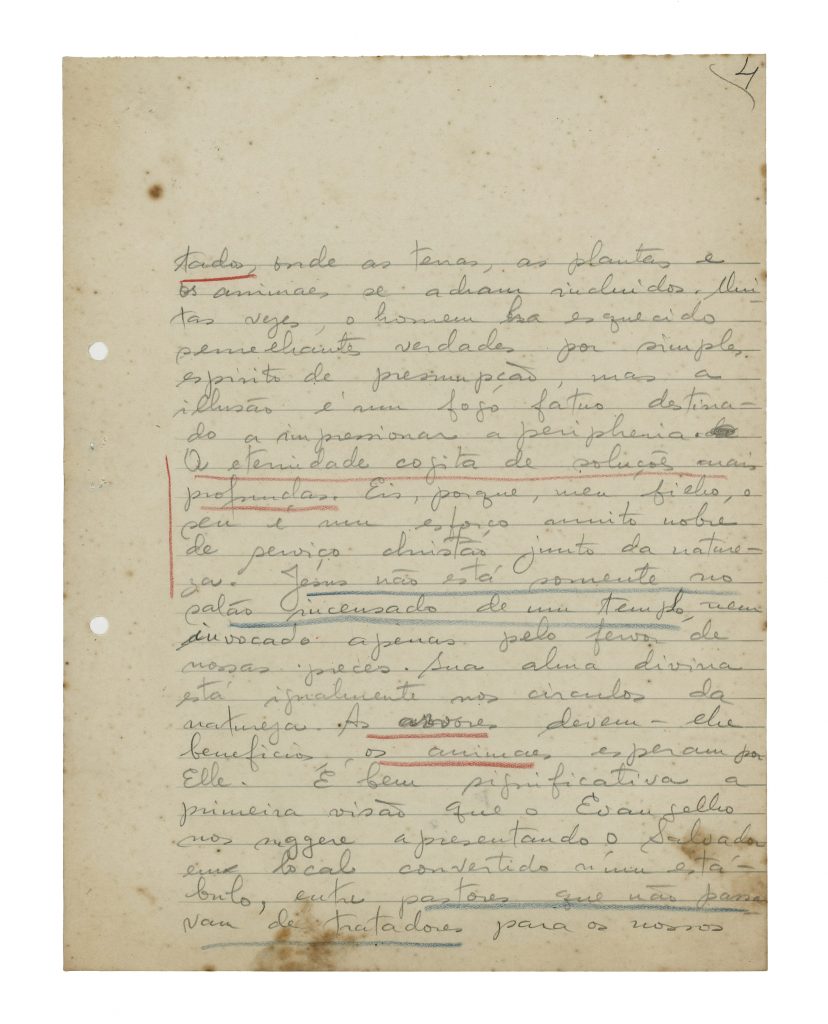 4
tados, onde as terras, as plantas e
os animaes se acham incluidos. Mui-
tas vezes, o homem ha esquecido
semelhantes verdades por simples
espirito de presumpção, mas a
illusão é um fogo fatuo destina-
do a impressionar a peripheria.
A eternidade cogita de soluções mais
profundas. Eis, porque, meu filho, o
seu é um esforço muito nobre
de serviço christão junto da nature-
za. Jesus não está somente no
salão incensado de um templo, nem
invocado apenas pelo fervor de
nossas preces. Sua alma divina
está igualmente nos circulos da
natureza. As arvores devem-lhe
beneficios, os animaes esperam por
Elle. É bem significativa a
primeira visão que o Evangelho
nos suggere apresentando o Salvador
em local convertido n'um está-
bulo, entre pastores que não passa-
vam de tratadores para os nossos